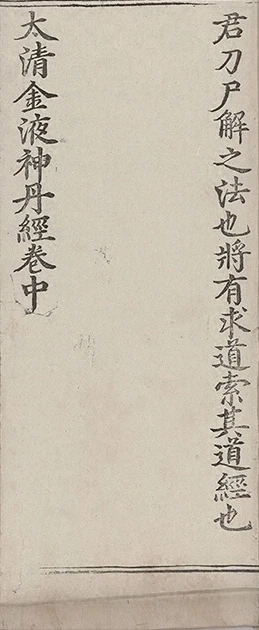 君刀尸解之法也將有求道索其道經也
太清金液神丹經卷中